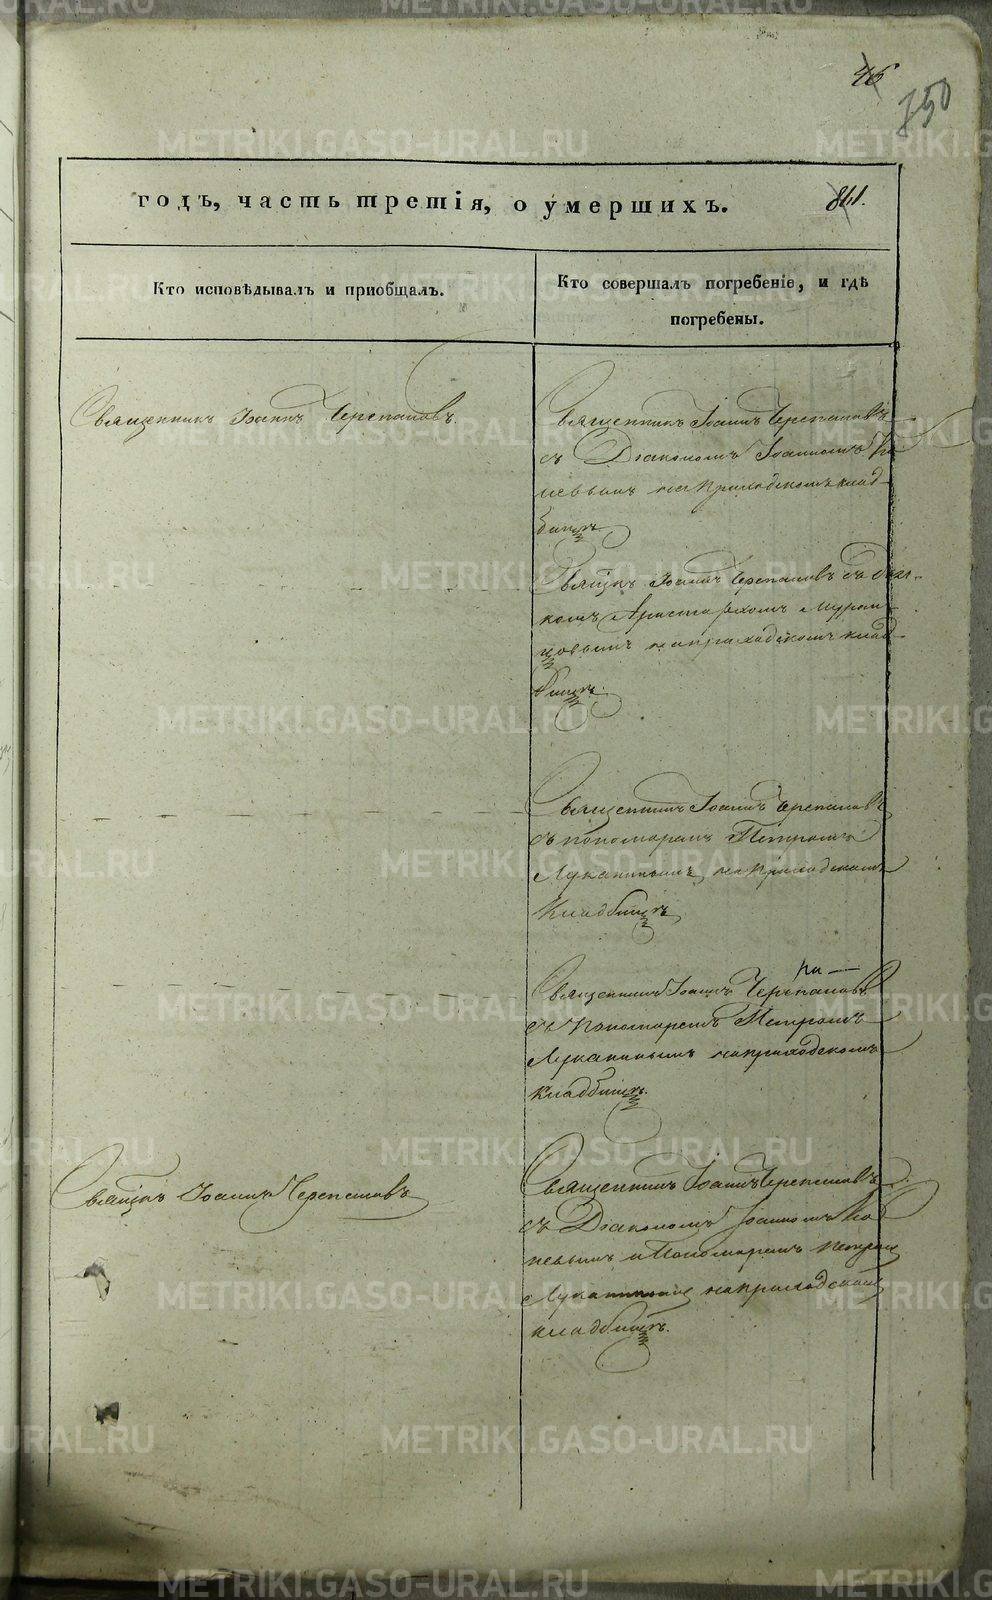 46
750
годъ, часть третія, о умершихъ.
841.
Кто исповѣдывалъ и приобщалъ.
Кто совершалъ погребеніе, и гдѣ
погребены.
Священникъ Іоаннъ Черепановъ.
Священникъ Іоаннъ Черепановъ
съ Діакономъ Іоанномъ
на приходскомъ клад-
бищѣ
Свящнкъ Іоаннъ Черепановъ съ дьяч-
комъ Аристархомъ
на приходскомъ клад-
бищѣ.
Священникъ Іоаннъ Черепановъ
съ пономаремъ Петромъ
Луканинымъ на приходскомъ
кладбищѣ
Священникъ Іоаннъ Черепановъ
съ пономаремъ Петромъ
Луканинымъ на приходскомъ
кладбищѣ.
Свящнкъ Іоаннъ Черепановъ
Священникъ Іоаннъ Черепановъ
съ Діакономъ Іоанномъ
и Пономаремъ Петромъ
Луканинымъ на приходскомъ
кладбищѣ.
METRIKI.GASO-URAL.RU